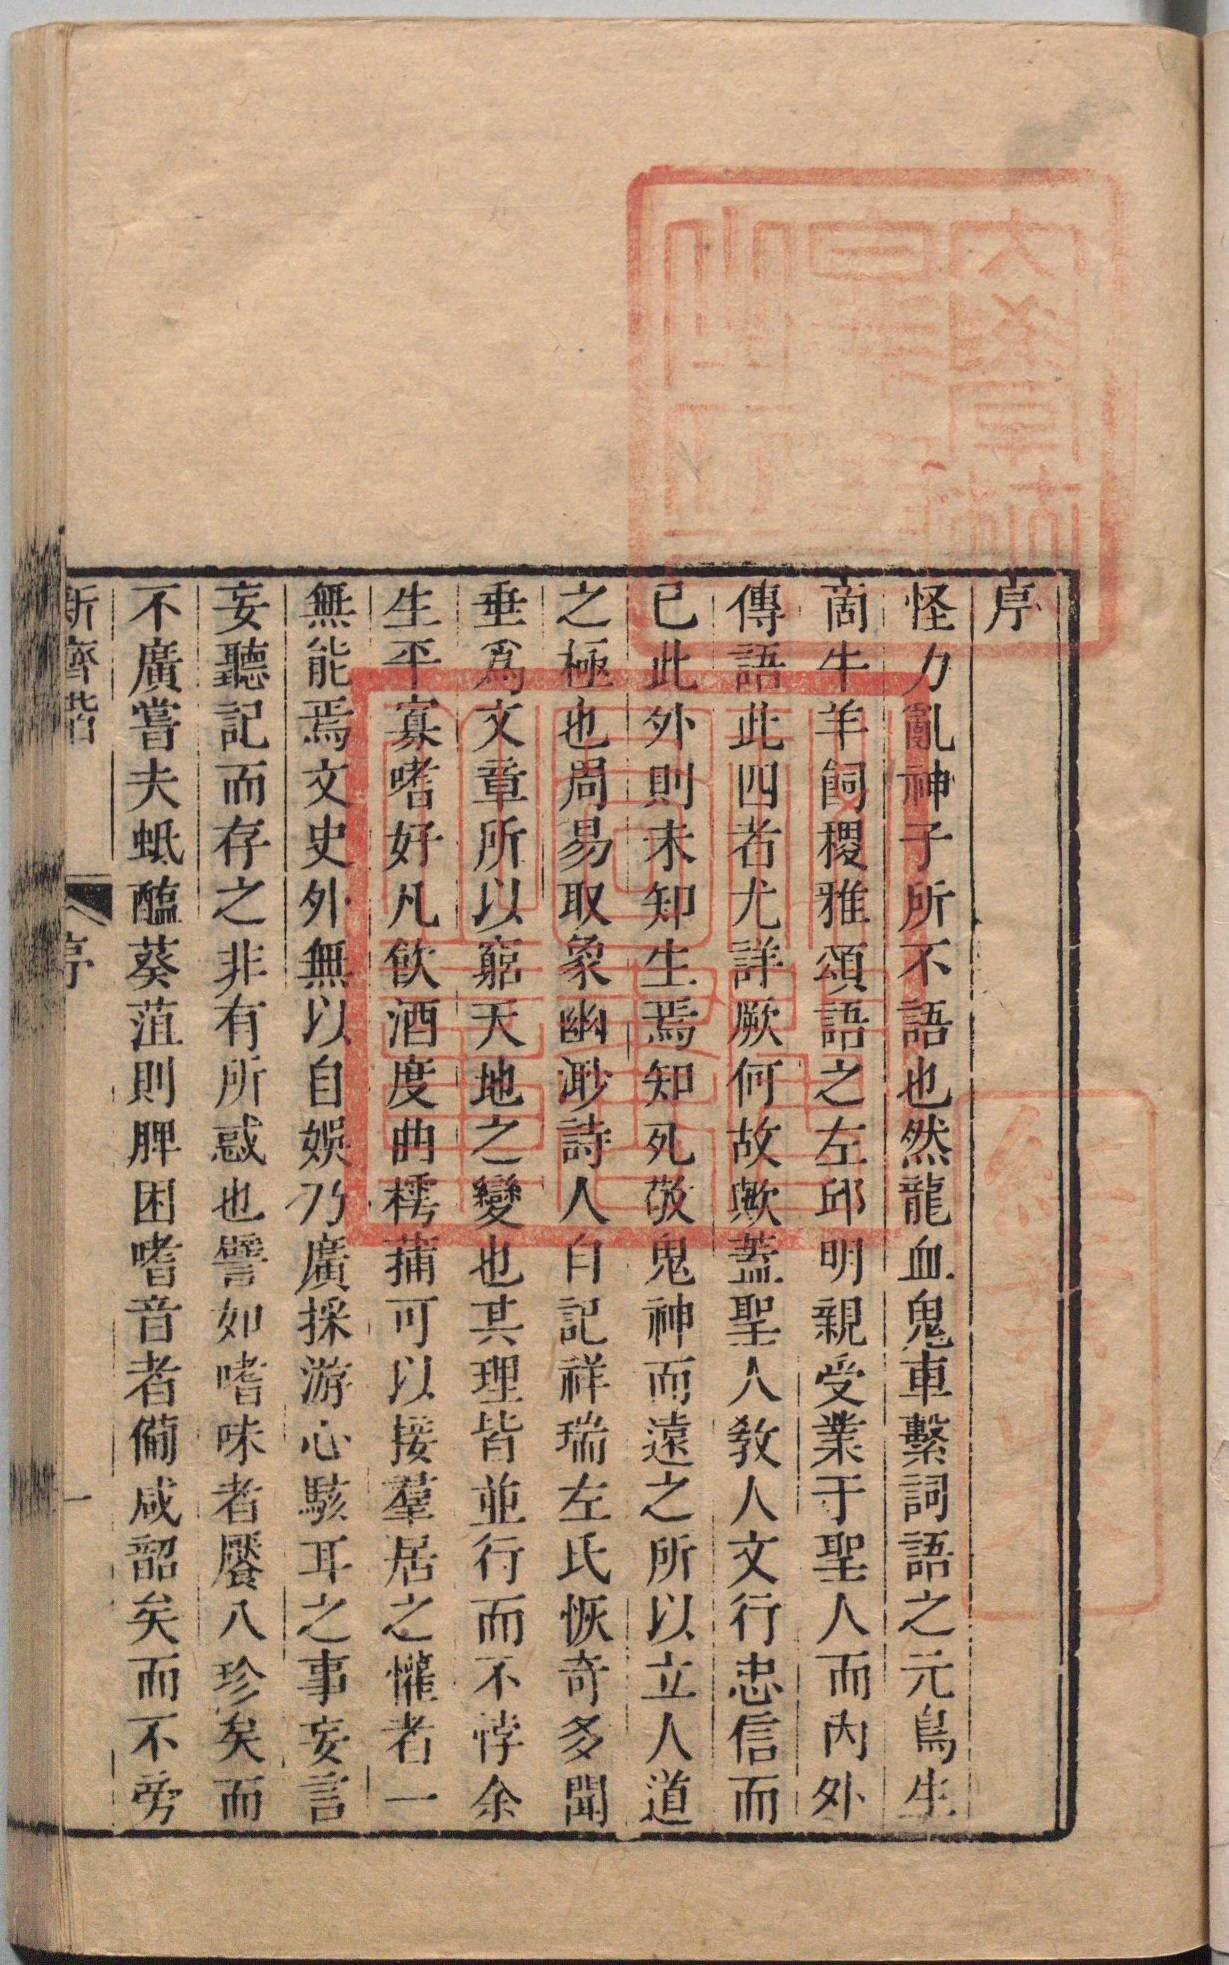 序
怪力亂神子所不語也然龍血鬼車繫詞語之元鳥生
商牛羊飼稷雅頌語之左邱明親受業于聖人而內外
傳語此四者尤詳厥何故歟蓋聖人教人文行忠信而
已此外則未知生焉知死敬鬼神而遠之所以立人道
之極也周易取象幽渺詩人自記祥瑞左氏恢奇多聞
垂爲文章所以窮天地之變也其理皆並行而不悖余
生平寡嗜好凡飲酒度曲樗蒲可以接羣居之懽者一
無能焉文史外無以自娛乃廣採游心駭耳之事妄言
妄聽記而存之非有所惑也譬如嗜味者饜八珍矣而
不廣嘗夫蚳醢葵菹則脾困嗜音者備咸韶矣而不旁
新齊諧 序 一